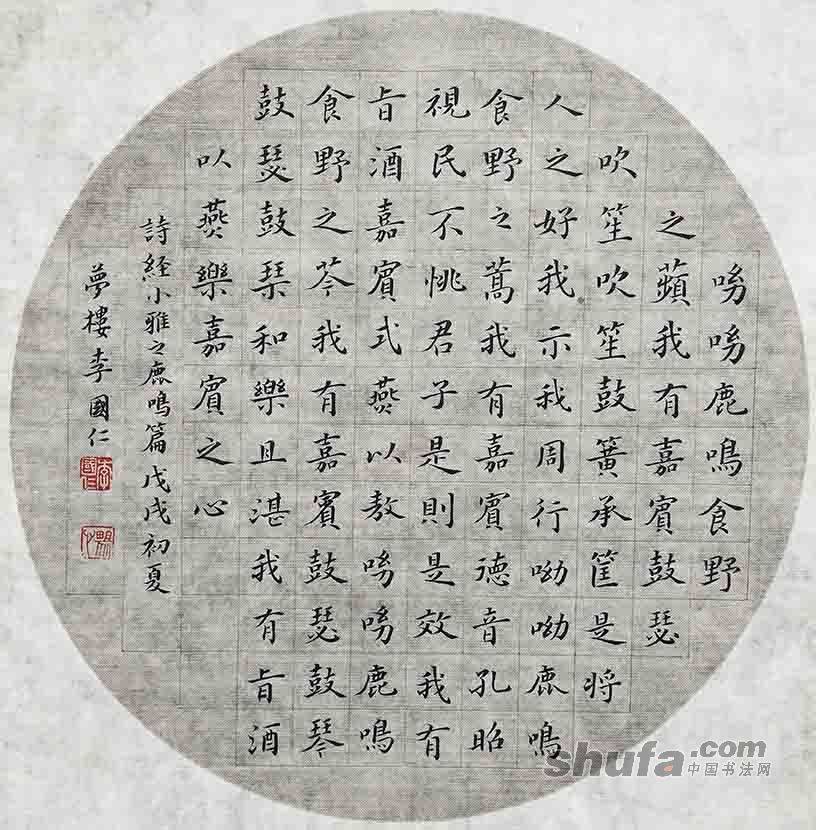 呦呦鹿鳴食野
之蘋我有嘉賓鼓瑟
吹笙吹笙鼓簧承筐是将
人之好我示我周行呦呦鹿鳴
食野之蒿我有嘉賓德音孔昭
視民不恌君子是則是效我有
旨酒嘉賓式燕以敖呦呦鹿鳴
食野之芩我有嘉賓鼓瑟鼓琴
鼓瑟鼓琴和樂且湛我有旨酒
以燕樂嘉賓之心
詩経小雅之鹿鳴篇戊戌初夏
夢樓李國仁
李國仁
shufa.com
中国书法网